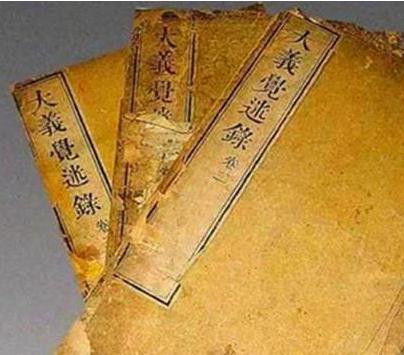 大義覺迷錄 卷
大義覺
大義覺迷錄 卷二